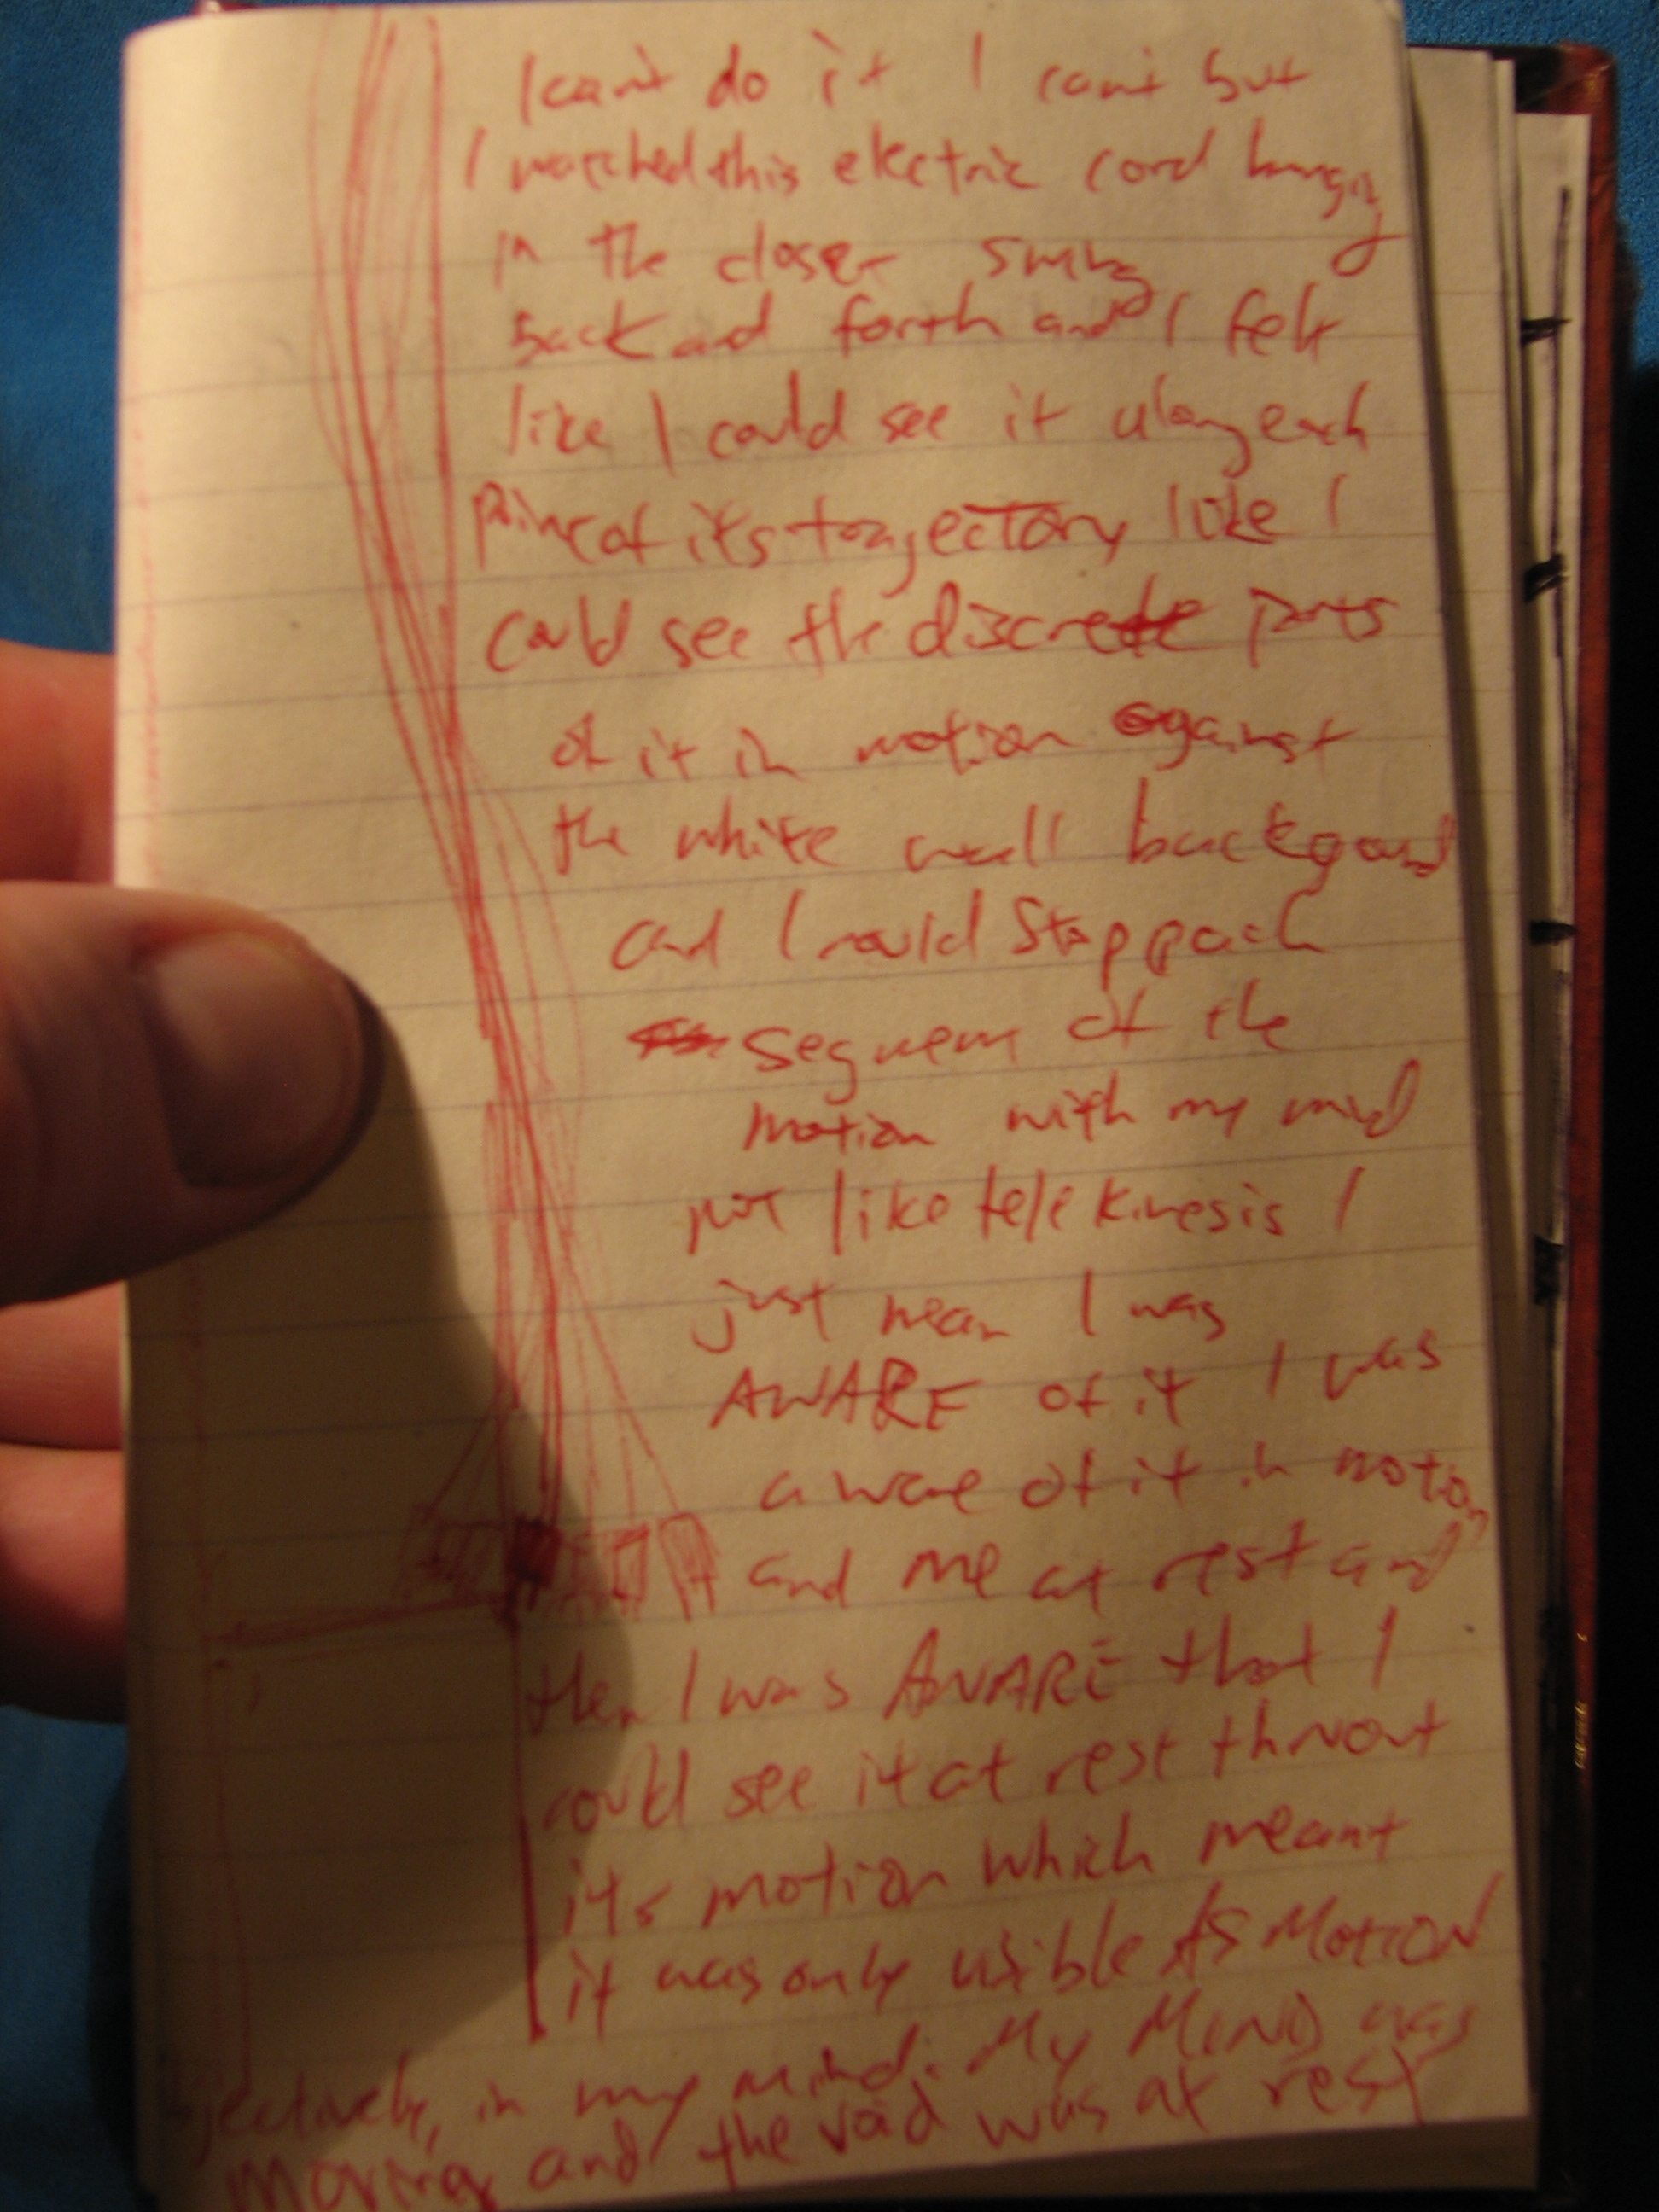 I can't do it I can't but
I watched this electric cord hanging
in the closet swing
back and forth and I felt
like I could see it along each
point of its trajectory like I
could see the discrete parts
of it in motion against
the white wall backgound
and I could stop each
segment of the
motion with my mind
not like telekinesis I
just mean I was
AWARE of it I was
aware of it in motion
and me at rest and
then I was AWARE that I
could see it at rest throout
its motion which meant
it was only visible AS MOTION
in my mind. My MIND was
moving and the void was at rest